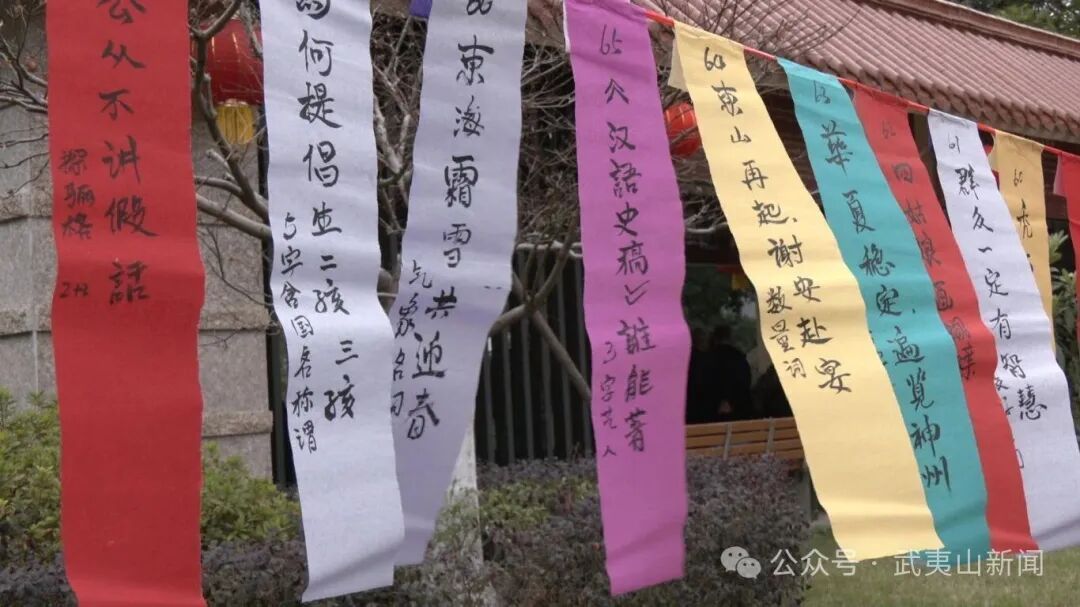 公从不讲假話
骊格 2+2
何提倡生二孩三孩
5字含国名称谓
66 東海霜雪共迎春
气象名词
65 《汉語史稿》誰能著
3字古人
64 東山再起,谢安赴宴
数量词
63 華夏稳定,遍览神州
62 四姑娘
61 群众一定有智慧
60 虎
公众号·武夷山新闻